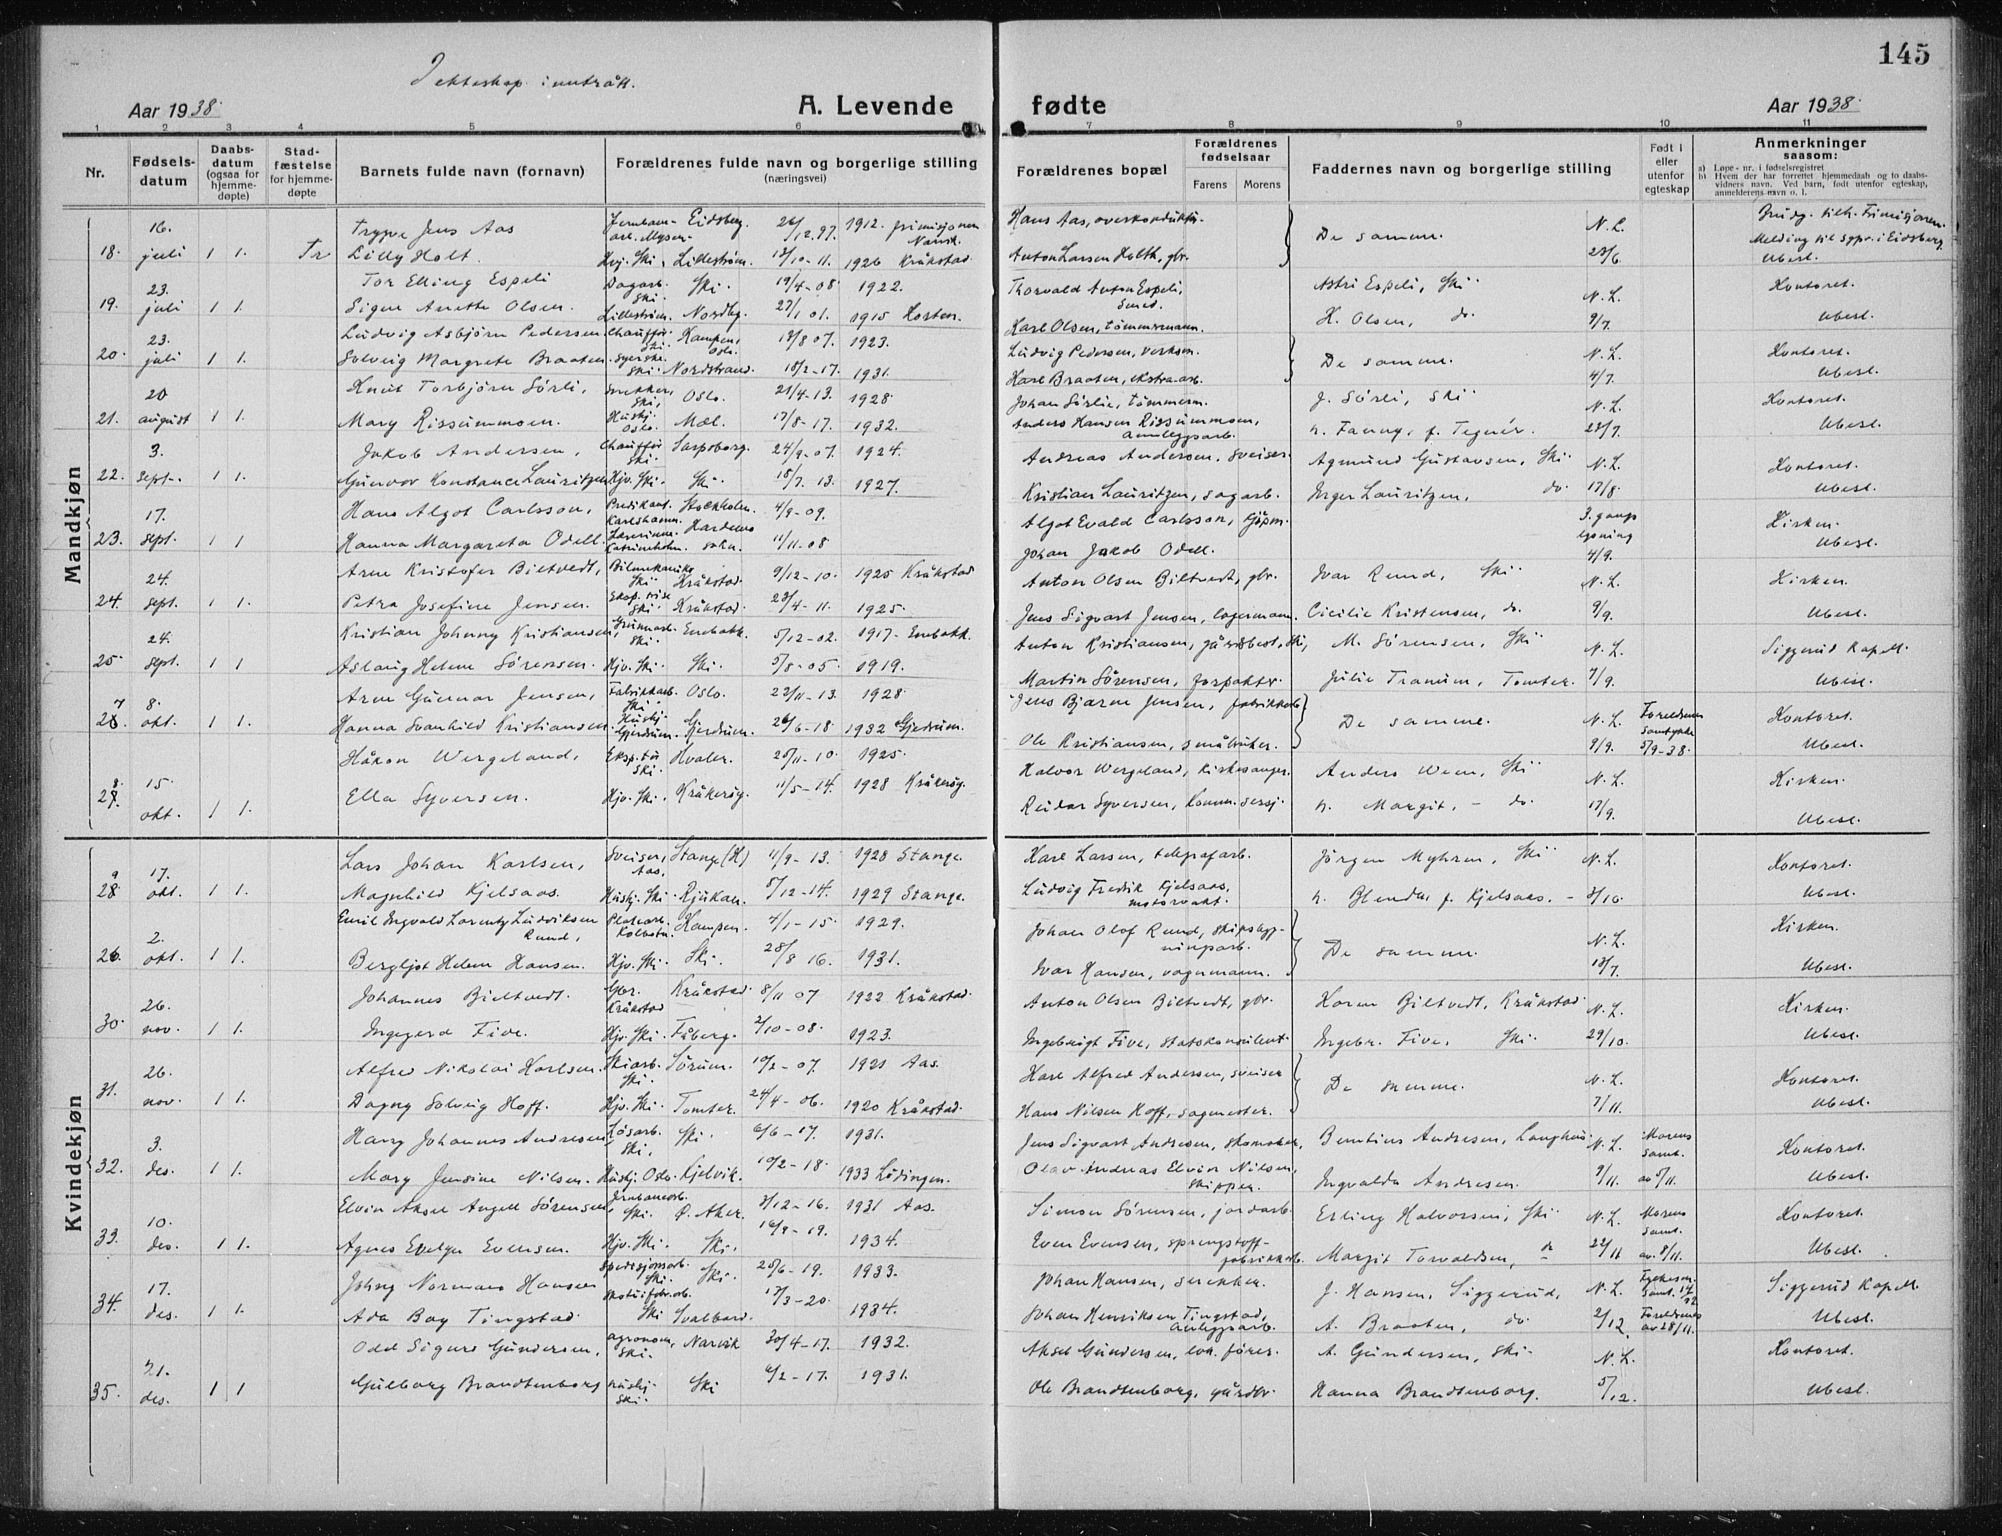 145
I ekteskap inntrått.
Aar 1938.
A. Levende
fødte
Aar 1938.
1 2 3 4 5 6 7 8 9 10 11
Nr.
Fødsels-
datum
Daabs-
datum
(ogsaa for
hjemme-
døpte)
Stad-
fæstelse
for hjemme-
døpte
Barnets fulde navn (fornavn)
Forældrenes fulde navn og borgerlige stilling
(næringsvei)
Forældrenes bopæl
Forældrenes
fødselsaar
Farens Morens
Faddernes navn og borgerlige stilling
Født i
eller
utenfor
egteskap
Anmerkninger
saasom:
a) Løpe-nr. i fødselsregistret
b) Hvem der har forrettet hjemmedaab og to daabs-
vidners navn. Ved barn, født utenfor egteskap,
anmelderens navn o. l.
Mandkjøn
Kvindekjøn
16. Trygve Jens Aas Eidsberg. 26/12.97. 1912. Hans Aas, overkonduktør. De samme. N. L.
Melding til sgpr. i Eidsberg.
18. juli 1 1. Tr Lilly Holt. Hvj. Ski. Lillestrøm. 13/10-11. 1926 Kråkstad Anton Larsen Holth, gbr. 23/6 Ubesl.
23. Tor Elling Espeli Dagarb. Ski. Ski. 19/4-08 1922. Thorvald Anton Espeli, Smed. Astri Espeli, Ski N. L. Kontoret.
19. juli 1 1. Signe Anette Olsen. Lillestrøm. Nordby. 27/1 01. 1915 Horten. Karl Olsen, tømmermann. H. Olsen, do. 9/7. Ubesl.
23. Ludvig Asbjørn Pedersen. Chauffør. Ski. Kampen, Oslo. 13/8 07. 1923. Ludvig Pedersen, verksm. De samme. N. L. Kontoret.
20. juli 1 1. Solveig Margrete Braaten. Syerske. Ski. Nordstrand. 18/2-17. 1931. Karl Braaten, ekstraarb. 4/7. Ubesl.
20 Knut Torbjørn Sørli, Snekker, Ski, Oslo. 21/4-13. 1928 Johan Sørlie, tømmerm. J. Sørli, Ski N. L. Kontoret.
21. august 1 1. Mary Rissummoen. Hushj. Oslo. Mæl. 17/8-17. 1932. Anders Hansen Rissummoen, Annleggsarb. h. Fanny, f. Tegnér. 23/7. Ubesl.
3. Jakob Andersen, Chauffør Ski. Sarpsborg. 24/9-07. 1924. Andreas Andersen, Sveiser. Agmund Gustavsen, Ski N. L. Kontoret.
22. sept. 1 1. Gunvor Konstance Lauritzen Hjv. Ski. Ski. 18/7 13. 1927. Kristian Lauritzen, sagarb. Inger Lauritzen, do. 17/8. Ubesl.
17. Hans Algot Carlsson, Predikant. Karlshamn. Stockholm. 4/9-09. Algot Evald Carlsson, kjøpm. 3. gangs lysning Kirken.
23. sept. 1 1 Hanna Margareta Odell. Katrineholm. 11/11-08 Johan Jakob Odell. 4/9. Ubesl.
24. Arne Kristofer Bieltvedt, Ski Kråkstad. 9/12-10. 1925 Kråkstad Anton Olsen Biltvedt, gbr. Ivar Rund, Ski N. L. Kirken.
24. sept. 1 1. Petra Josefine Jensen. Eksp.trise Ski. Kråkstad. 23/4-11. 1925. Jens Sigvart Jensen, lagermann. Cicilie Kristensen, do. 9/9. Ubesl.
24. Kristian Johnny Kristiansen, Ski. Enebakk. 5/12-02. 1917- Enebakk. Anton Kristiansen, gårdsbest. Ski, M. Sørensen, Ski N. L. Siggerud Kapell.
25. sept. 1 1 Aslaug Helene Sørensen. Hjv. Ski. Ski. 5/8-05. 1919. Martin Sørensen, forpakter. Julie Tranum, Tomter. 7/9. Ubesl.
8. Arne Gunnar Jensen, Fabrikkarb. Ski. Oslo. 22/11-13. 1928. Jens Bjarne Jensen, fabrikkarb. De samme. N. L. Foreldrenes Samtykke Kontoret.
27. okt. 1 1. Hanna Svanhild Kristiansen. Hushj. Gjerdrum. Gjerdrum. 26/6-18 1932 Gjerdrum. Ole Kristiansen, småbruker. 9/9. 5/9-38. Ubesl.
15. Håkon Wergeland, Eksp.tør Ski. Hvaler. 25/11-10. 1925. Halvor Wergeland, kirkesanger. Anders Ween, Ski N. L. Kirken.
28. okt. 1 1. Ella Syversen. Hjv. Ski. Kråkerøy. 11/5-14. 1928 Kråkerøy. Reidar Syversen, komm.sersj. h. Margit, - do. 17/9. Ubesl.
17. Lars Johan Karlsen, Sveiser, Aas. Stange (H) 11/9-13. 1928 Stange. Karl Larsen, telegrafarb. Jørgen Myhren, Ski N. L. Kontoret.
29. okt. 1 1. Magnhild Kjelsaas. Hushj. Ski. Rjukan. 5/12-14. 1929 Stange. Ludvig Fredrik Kjelsaas, motorvakt. h. Blenda, f. Kjelsaas. - 3/10. Ubesl.
2. Emil Ingvald Lorentz Ludviksen Rund, Platearb. Kolbotn. Kampen. 4/1-15. 1929. Johan Olof Rund, skipsbygningsarb. De samme. N. L. Kirken.
26. okt. 1 1. Bergljot Helene Hansen. Hjv. Ski. Ski. 28/8 16. 1931. Ivar Hansen, vognmann. 13/7. Ubesl.
26. Johannes Bieltvedt. Gbr. Kråkstad Kråkstad. 8/11 07 1922 Kråkstad. Anton Olsen Biltvedt, gbr. Karen Biltvedt, Kråkstad N. L. Kirken.
30. nov. 1 1. Ingegerd Five. Hjv. Ski. Fåberg. 2/10-08. 1923. Ingebrigt Five, statskonsulent. Ingebr. Five, Ski. 29/10. Ubesl.
26. Alfred Nikolai Karlsen. Skiarb. Ski. Sørum. 10/2-07. 1921 Aas. Karl Alfred Andersen, sveiser De samme. N. L. Kontoret.
31. nov. 1 1. Dagny Solveig Hoff. Hjv. Ski. Tomter. 24/4-06. 1920 Kråkstad. Hans Nilsen Hoff, sagmester. 7/11. Ubesl.
3. Harry Johannes Andresen Løsarb. Ski. Ski. 6/6-17. 1931. Jens Sigvart Andresen, skomaker, Berntine Andresen, Langhus. N. L. Morens Samt. Kontoret.
32. des. 1 1. Mary Jensine Nilsen. Hushj. Oslo. Kjelvik. 10/2-18. 1933 Lødingen. Olav Andreas Elvin Nilsen, skipper. Ingvalda Andresen. 9/11. av 5/11. Ubesl.
10. Elvin Aksel Angell Sørensen, Jernbanearb. Ski. Ø. Aker. 3/12-16. 1931 Aas. Simon Sørensen, jordarb. Erling Halvorsen, Ski N. L. Morens Samt. Kontoret.
33. des. 1 1. Agnes Evelyn Evensen. Hjv. Ski. Ski. 16/9-19. 1934. Even Evensen, sprengstoff-fabrikkarb. Margit Torvaldsen, do 22/11 av 8/11. Ubesl.
17. Johny Normann Hansen Spedisjonsarb. Ski. Ski. 25/6-19. 1933. Johan Hansen, snekker. J. Hansen, Siggerud, N. L. Siggerud Kapell
34. des. 1 1. Ada Boy Tingstad. Ski Svalbard. 17/3-20. 1934. Johan Henriksen Tingstad, anleggsarb. A. Braaten, do 2/12. Foreldrenes av 28/11. Ubesl.
21. Odd Sigurd Gundersen, agronom, Ski. Narvik 30/4-17. 1932. Aksel Gundersen, lok. fører. A. Gundersen, Ski. N. L. Kontoret.
35. des. 1 1 Gulborg Brandtenborg Hushj. Ski. Ski 6/2-17. 1931. Ole Brandtenborg, gårdbr. Hanna Brandtenborg. 5/12. Ubesl.